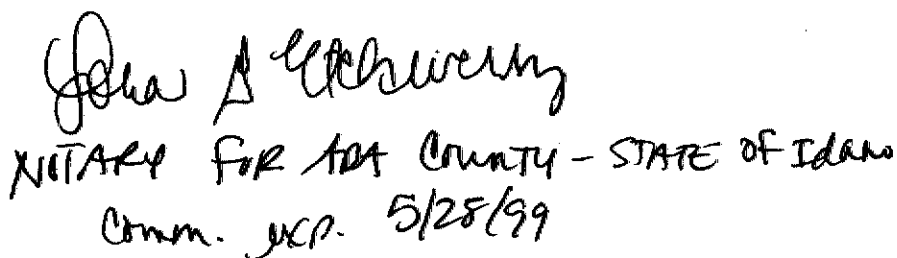 S Etcheverry
NOTARY FOR ADA COUNTY - STATE OF Idaho
Comm. exp. 5/28/99